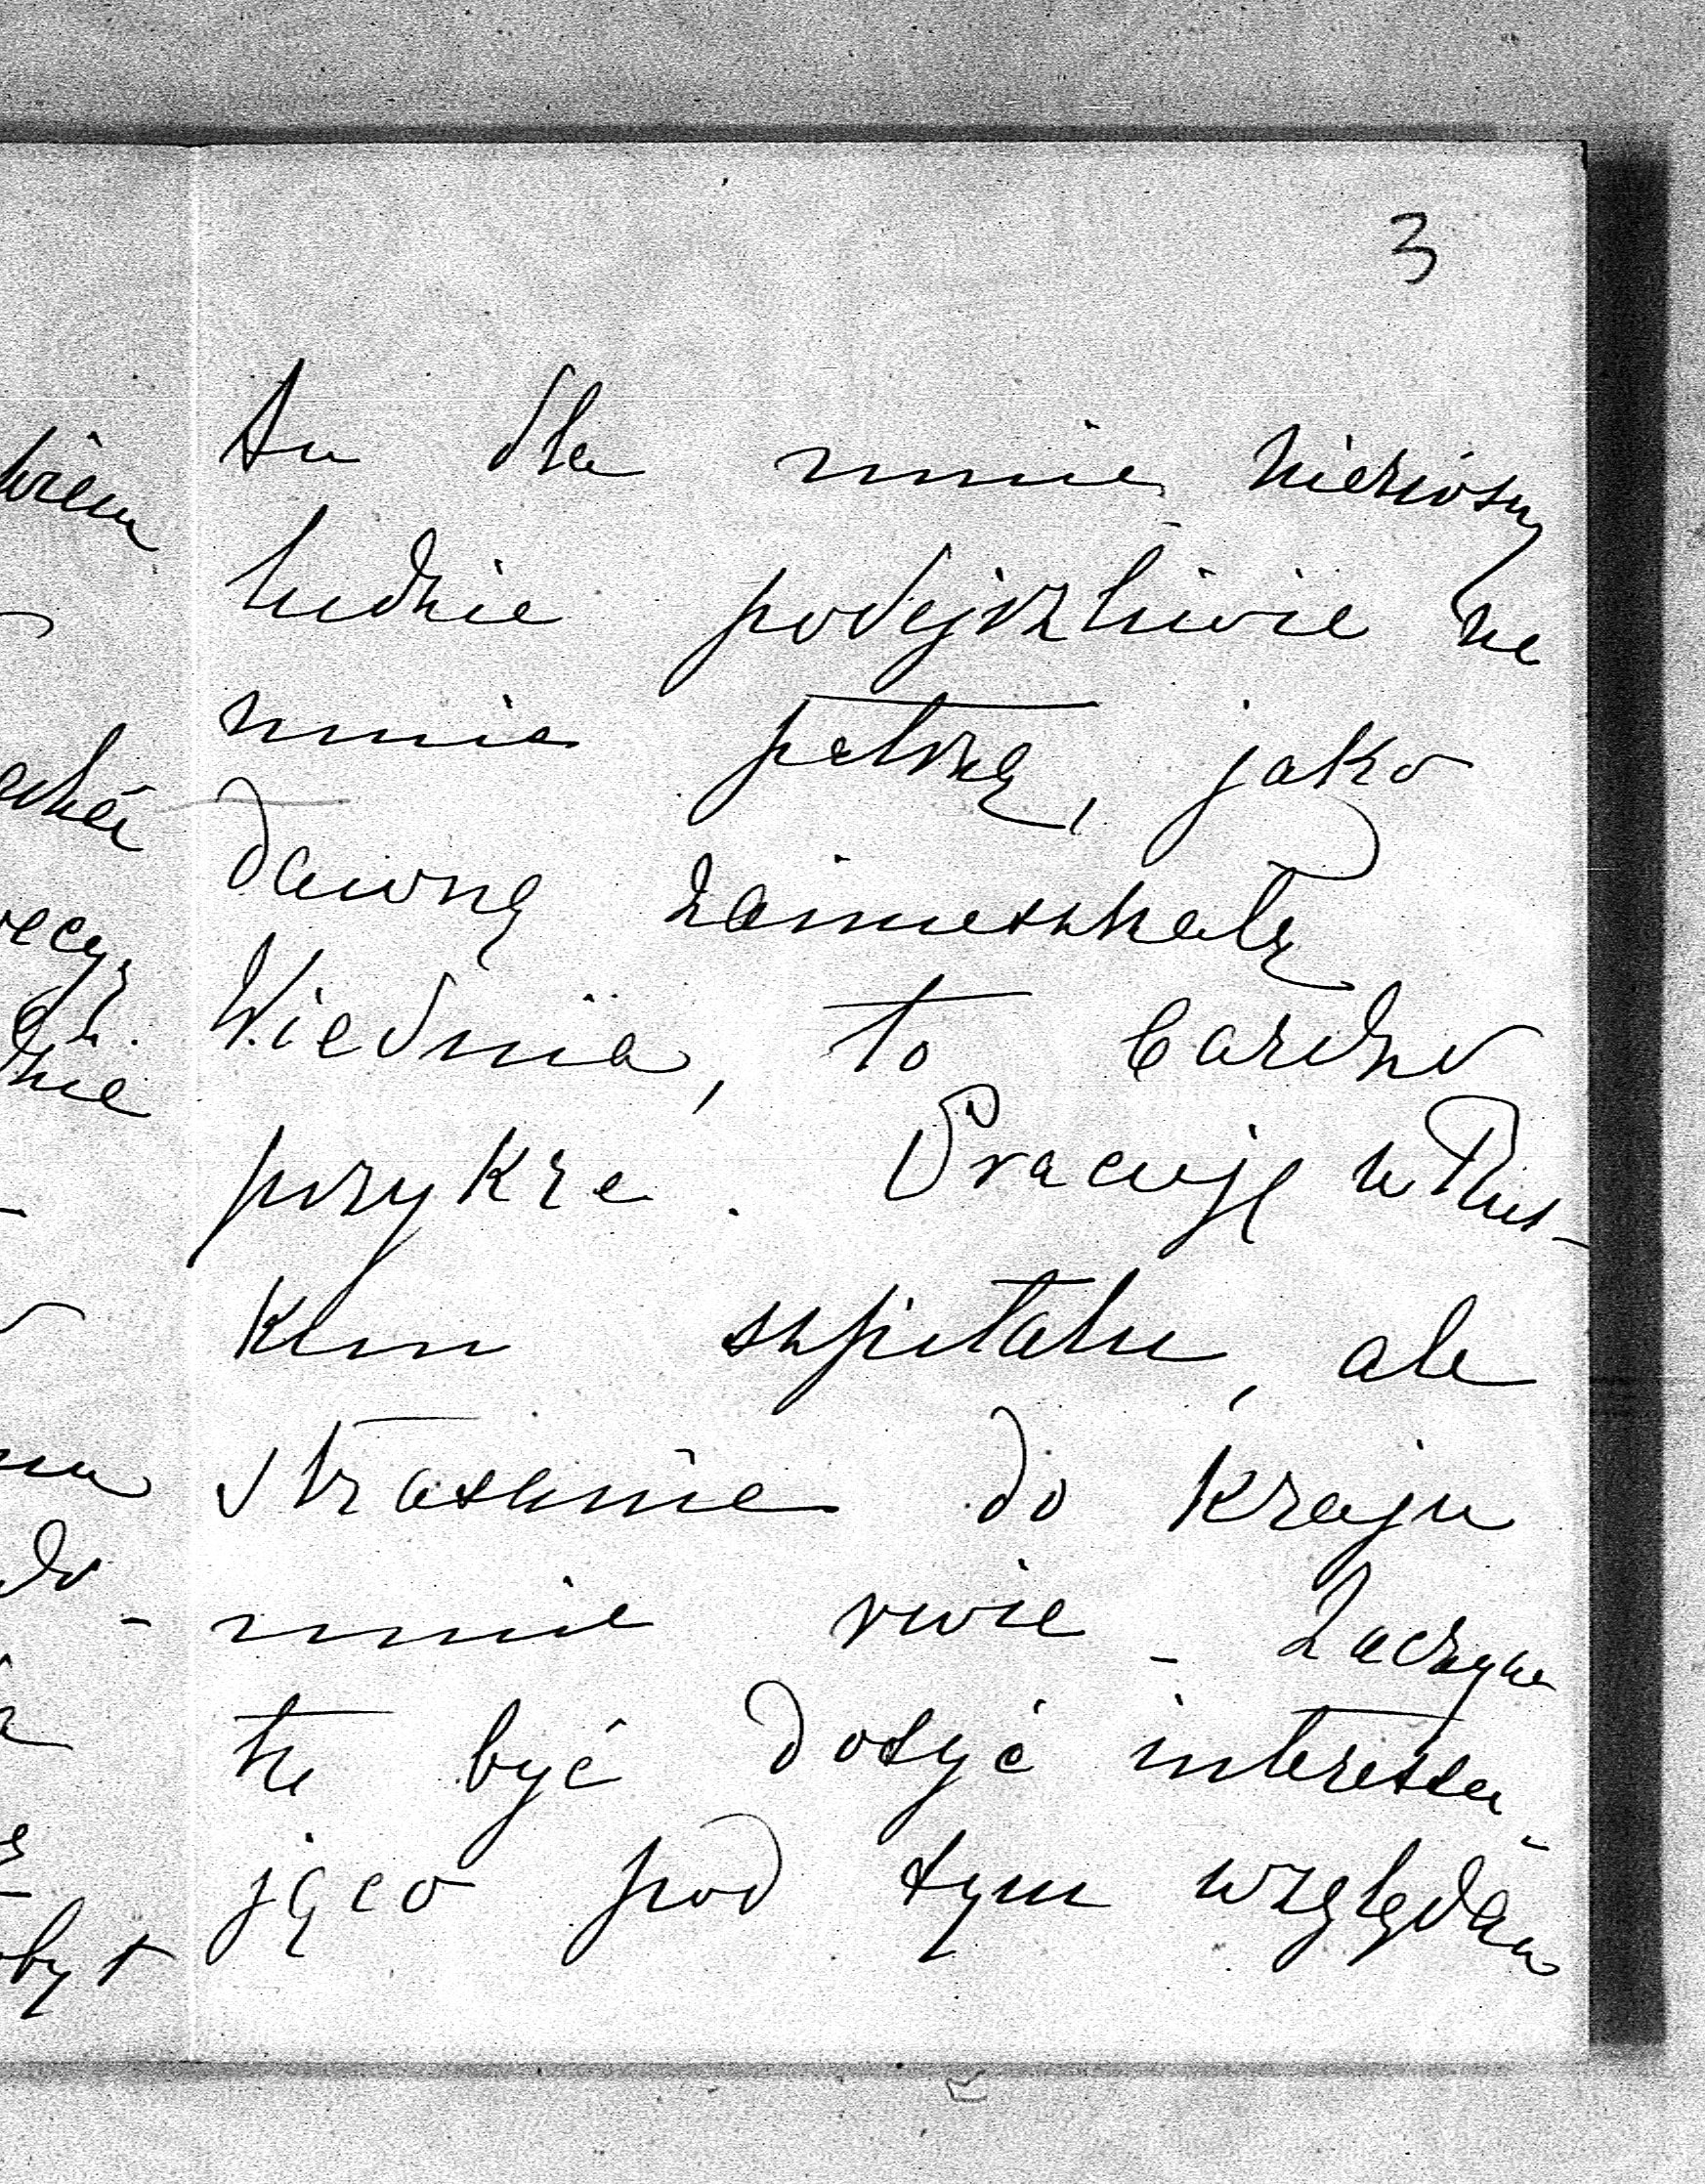 3
Tu dla mnie nieznośny
ludzie podejrzliwie na
mnie patrzą, jako
dawną zamieszkałą
Wiednia, to bardzo
przykre. Pracuję w Rus-
kim szpitalu, ale
strasznie do kraju
mnie rwie - Zaczyna
tu być dosyć interesu-
jąco pod tym względem